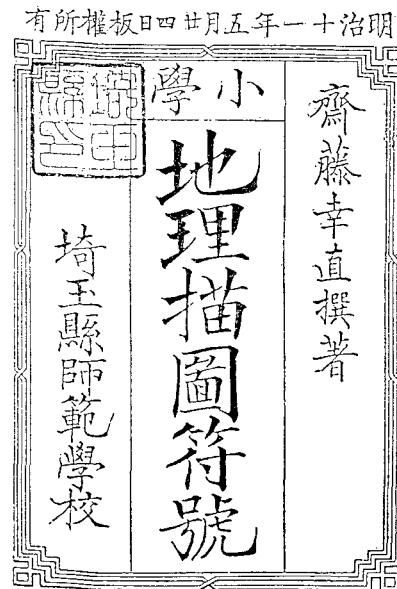 明治十一年五月廿四日板權所有
齋藤幸直撰著
小學
地理描圖符號
埼玉縣師範學校
埼玉縣印